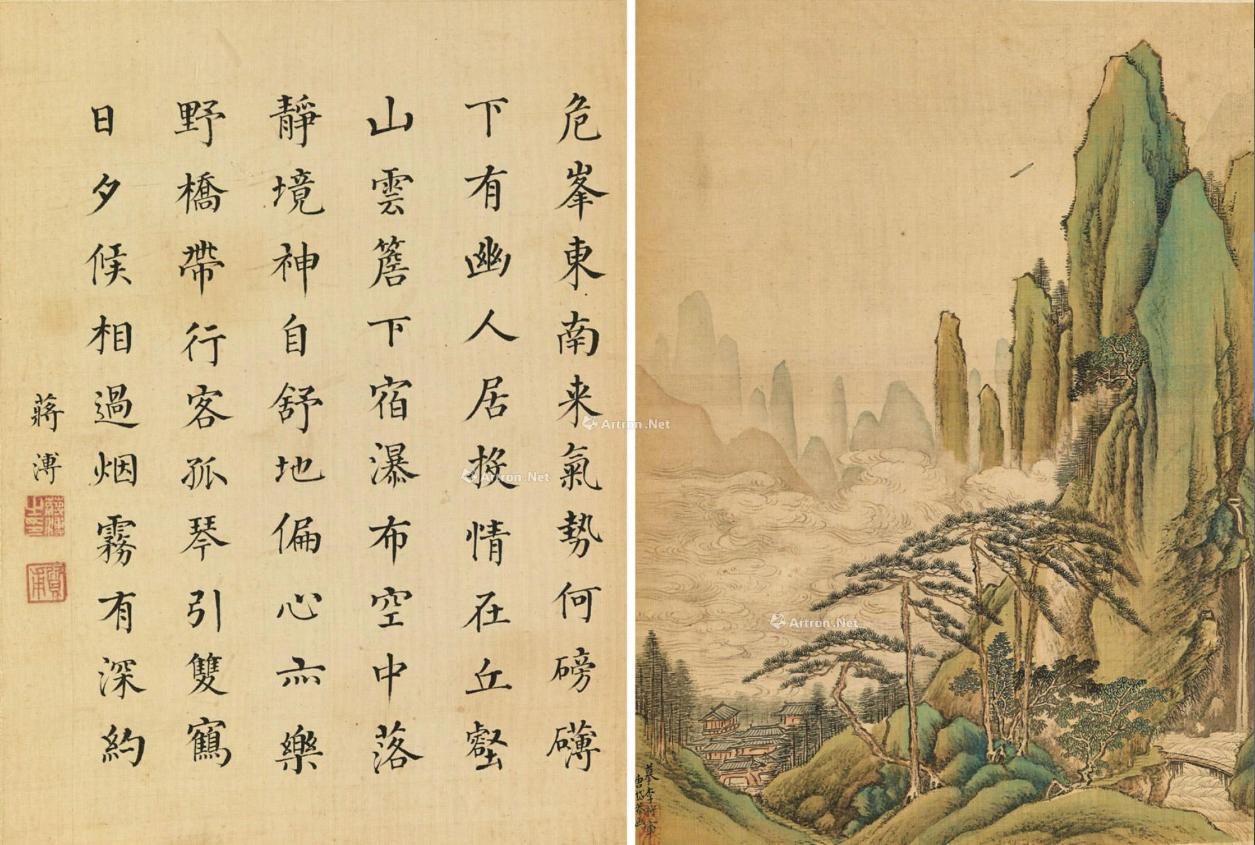 危峯東南来氣勢何磅礴
下有幽人居投情在丘壑
山雲簷下宿瀑布空中落
靜境神自舒地偏心亦樂
野橋帶行客孤琴引雙鶴
日夕候相過烟霧有深約
蔣溥
Artron.Net
Artron.Net
Artron.Net
摹李將軍
唐岱恭畫